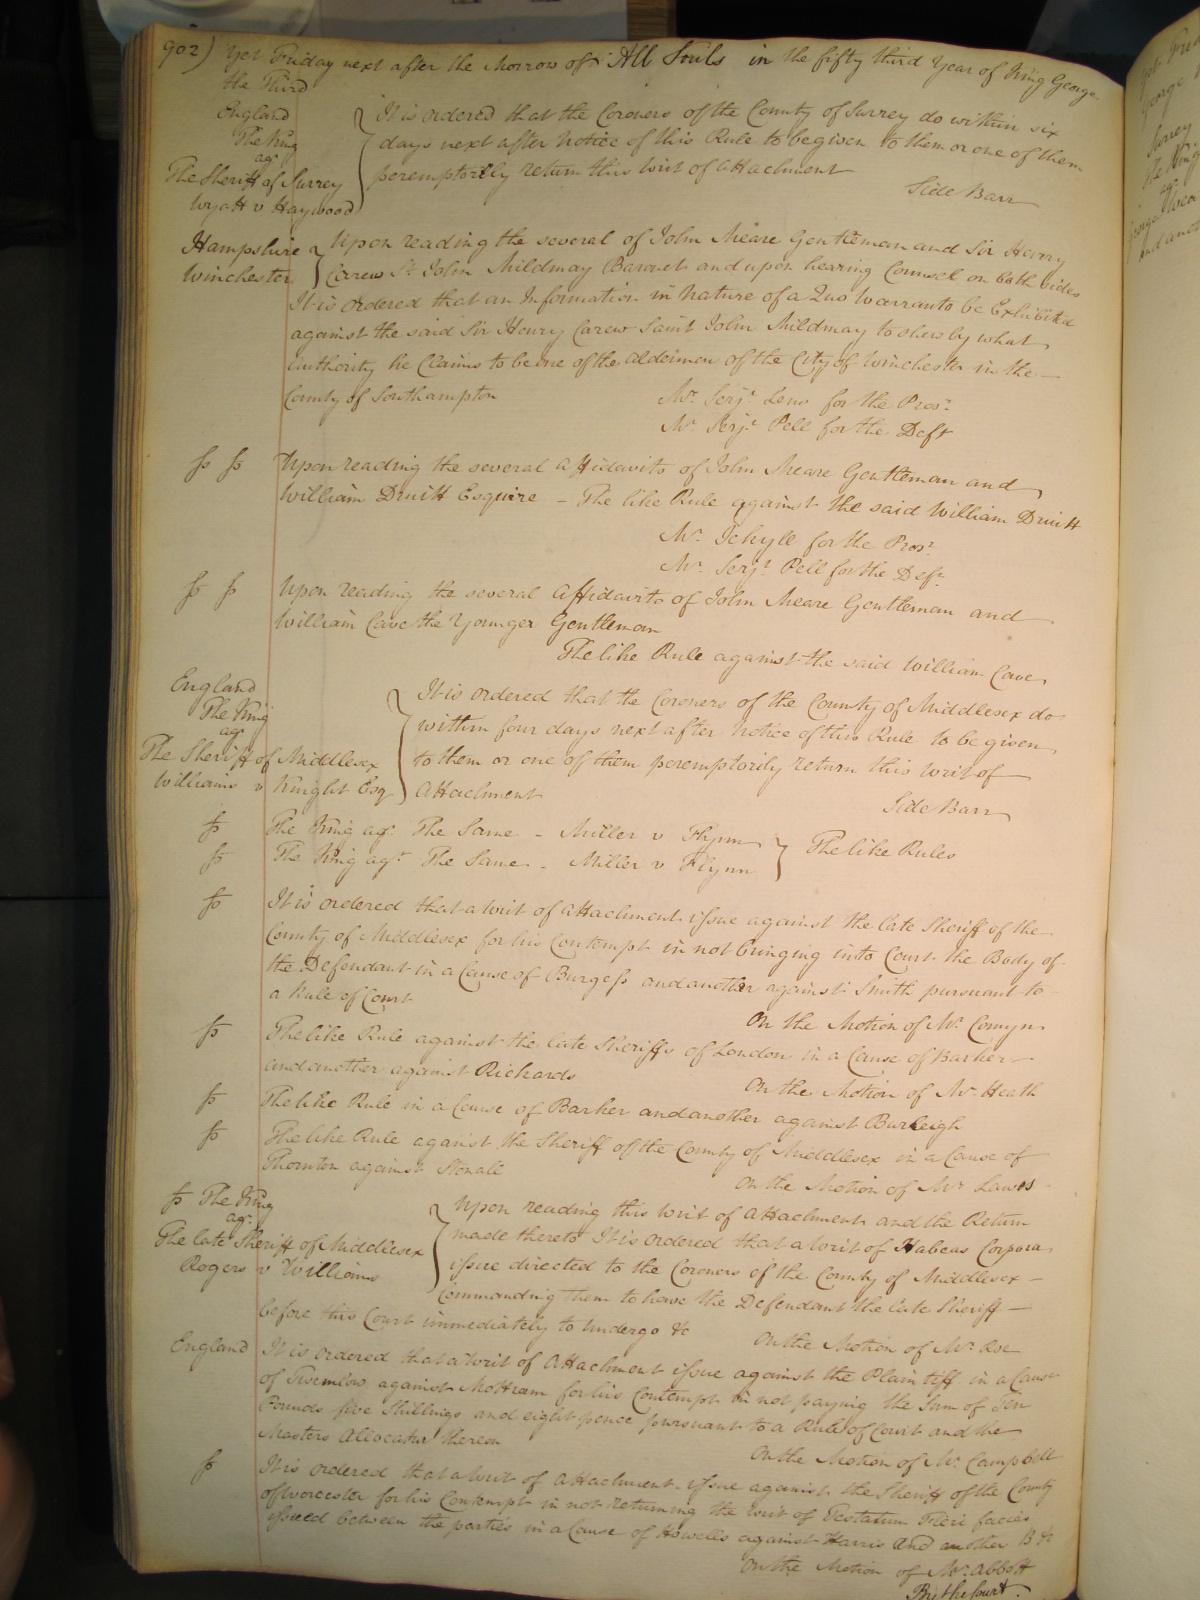 902) Yet Friday next after the Morrow of All Souls in the fifty third Year of King George
the Third
England
The King
agt
The Sheriff of Surrey
Wyatt v Haywood
It is ordered that the Coroners of the County of Surrey do within six
days next after Notice of this Rule to be given to them or one of them
peremptorily return this Writ of Attachment
Side Barr
Hampshire
Winchester
Upon reading the several of John Meare Gentleman and Sir Henry
Carew St John Mildmay Baronet and upon hearing Counsel on both sides
It is Ordered that an Information in Nature of a Quo Warranto be Exhibited
against the said Sir Henry Carew Saint John Mildmay to shew by what
Authority he Claims to be one of the Aldermen of the City of Winchester in the
County of Southampton
Mr. Serjt. Lens for the Prosr.
Mr. Serjt Pell for the Deft
Upon reading the several Affidavits of John Meare Gentleman and
William Druitt Esquire - The like Rule against the said William Druitt
Mr. Jekyll for the Prosr.
Mr. Serjt. Pell for the Deft.
Upon reading the several Affidavits of John Meare Gentleman and
William Cave the Younger Gentleman
The like Rule against the said William Cave
England
The King
agt
The Sheriff of Middlesex
Williams v Knight Esq
It is ordered that the Coroners of the County of Middlesex do
within four days next after Notice of this Rule to be given
to them or one of them peremptorily return this Writ of
Attachment
Side Barr
The King agt. The Same - Miller v Flynn
The King agt The Same - Miller v Flynn
The like Rules
It is ordered that a Writ of Attachment issue against the late Sheriff of the
County of Middlesex for his Contempt in not bringing into Court the Body of
the Defendant in a Cause of Burgess and another against Smith pursuant to
a Rule of Court
On the Motion of Mr. Comyn
The like Rule against the late Sheriffs of London in a Cause of Barker
and another against Richards
On the Motion of Mr. Heath
The like Rule in a Cause of Barker and another against Burleigh
The like Rule against the Sheriff of the County of Middlesex in a Cause of
Thornton against Stonall
On the Motion of Mr. Lawes
The King
agt.
The late Sheriff of Middlesex
Rogers v Williams
Upon reading this Writ of Attachment and the Return
made thereto It is ordered that a Writ of Habeas Corpora
issue directed to the Coroners of the County of Middlesex
Commanding them to have the Defendant the late Sheriff
before this Court immediately to undergo &c
On the Motion of Mr. Roe
England
It is ordered that a Writ of Attachment issue against the Plaintiff in a Cause
of Twemlow against Mottram for his Contempt in not paying the Sum of Ten
Pounds five Shillings and eight pence pursuant to a Rule of Court and the
Masters Allocatur thereon
On the Motion of Mr. Campbell
It is ordered that a Writ of Attachment issue against the Sheriff of the County
of Worcester for his Contempt in not returning the Writ of Testatum Fieri facias
issued between the parties in a Cause of Howells against Harris and another B &c
On the Motion of Mr. Abbott
By the Court.